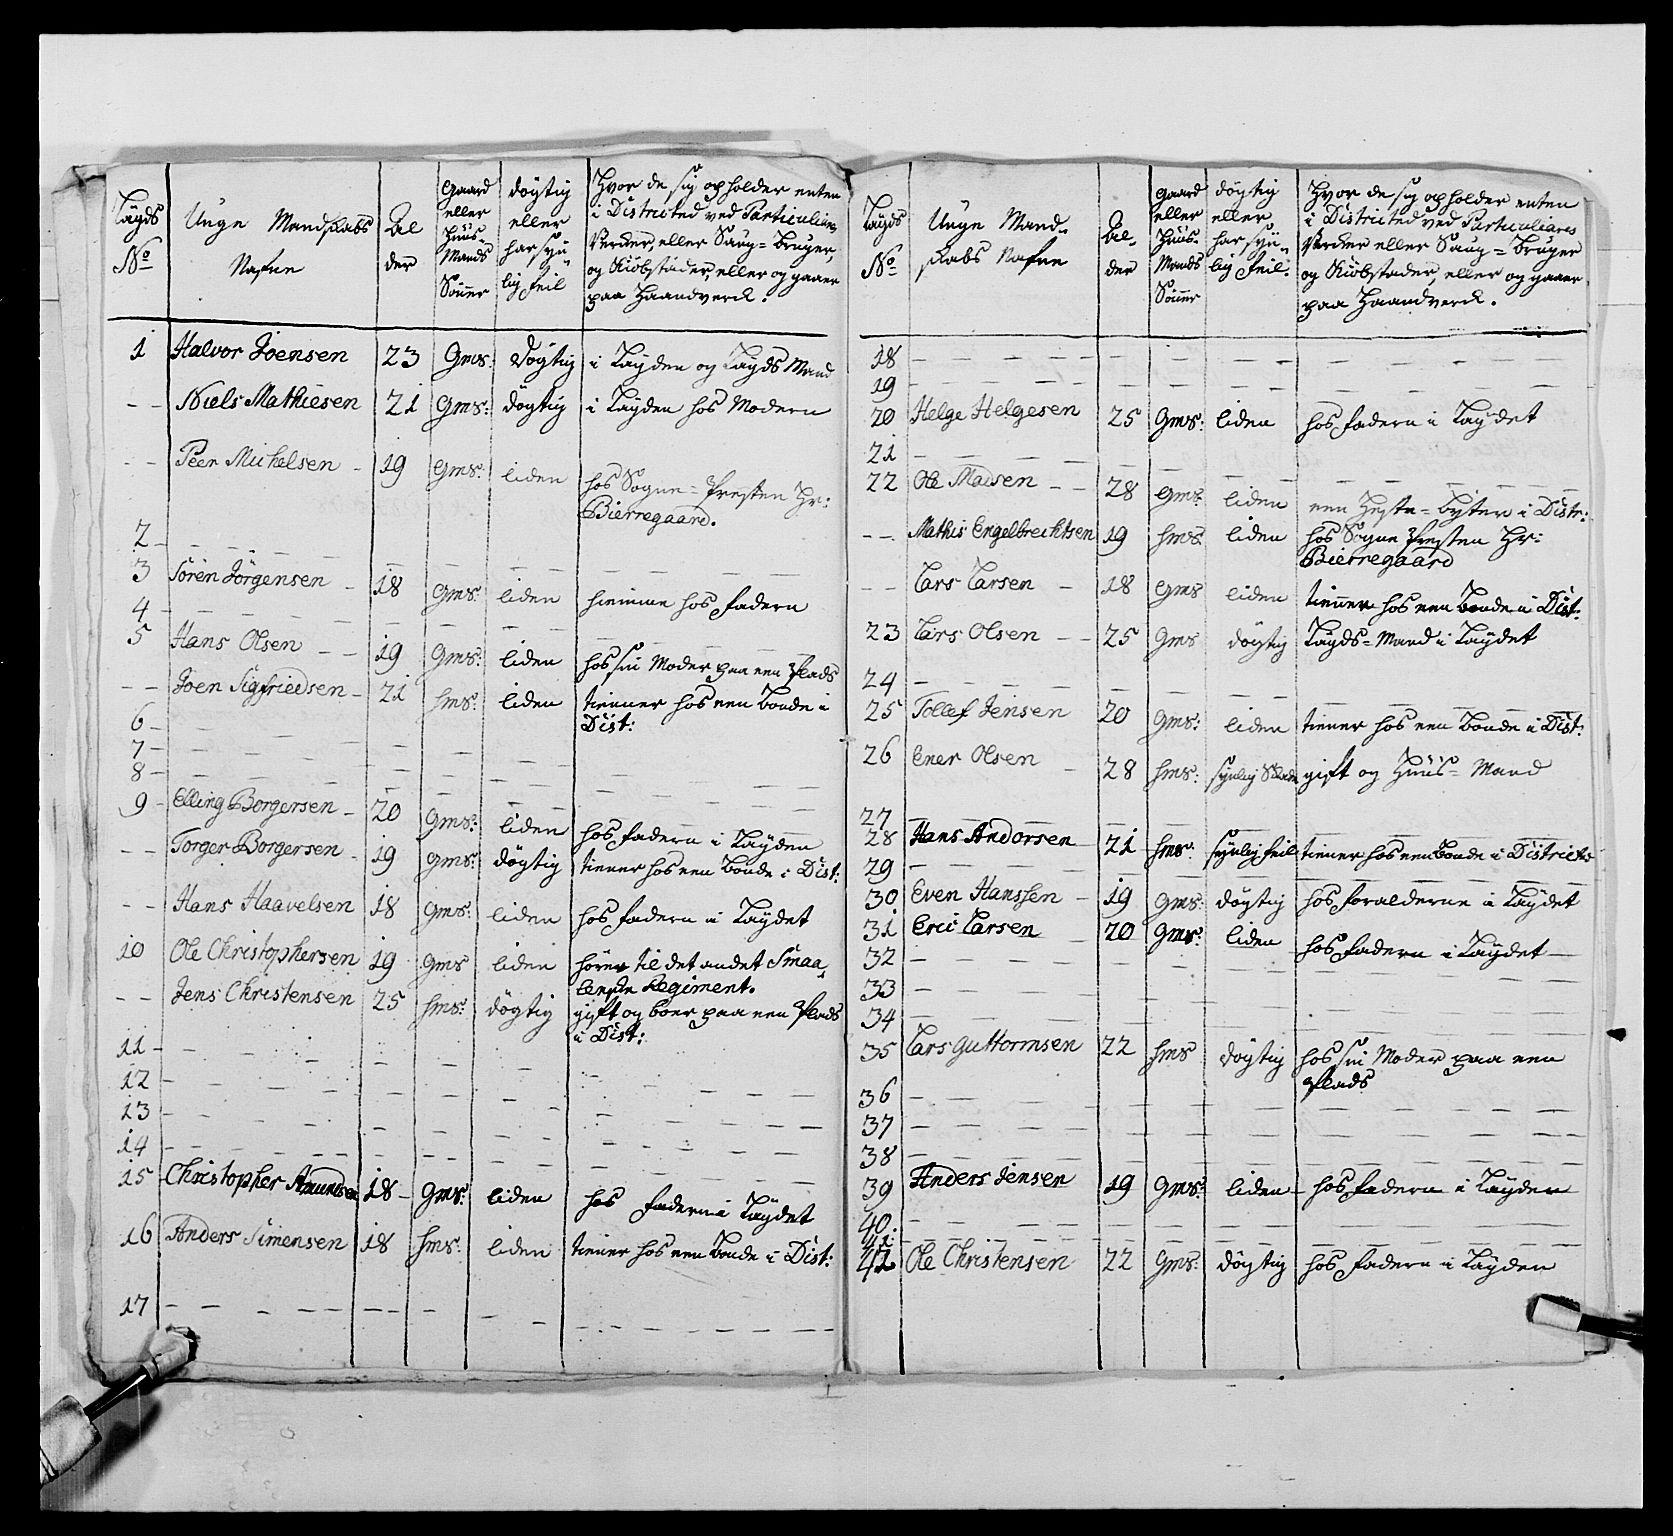 Läyds
No
Unge Mandskabs
Nafne
Al
der
Gaard
eller
Huus-
Mands
Sönner
döytig
eller
har syn-
lig feil
Hvor de sig opholder enten
i Districted ved Particuliare
Verder, eller Saug=Bruger,
og Kiöbstäder, eller og gaaer
paa Haandverck.
1 Halvor Joensen 23 Gms: döytig i Läyden og Läyds Mand
- - Niels Mathiesen 21 Gms: döytig i Läyden hos Modern
- - Peer Michelsen - 19 Gms: liden hos Sogne=Presten Hr:
Bierregaard.
2 - - - - -
3 Sören Jörgensen - 18 Gms: liden hiemme hos fadern
4 - - - - -
5 Hans Olsen - - 19 Gms: liden hos sin Moder paa een Plads
- - Joen Sigfriedsen - 21 hms: liden tienner hos een Bonde i
Dist:
6 - - - - -
7 - - - - -
8 - - - - -
9 - Elling Borgersen - 20 Gms: liden hos fadern i Läyden
- - Torger Borgersen - 19 Gms: döytig tiener hos een Bonde i Dist:
- - Hans Haavelsen 18 Gms: liden hos fadern i Läydet
10 Ole Christophersen 19 Gms liden hörer til det andet Smaa,
lenske Regiment.
- - Jens Christensen 25 hms: döytig gift og boer paa een Plads
i Dist:
11 - - - - -
12 - - - - -
13 - - - - -
14 - - - - -
15 Christopher Amundsen 18 - Gms: liden hos fadern i Läydet
16 Anders Simensen 18 hms: liden tiener hos een Bonde i Dist:
17 - - - - -
Läyds
No
Unge Mand-
skabs Nafne
Al-
der
Gaard
eller
Huus-
Mands
Sönner
döytig
eller
har syn-
lig feil
Hvor de sig opholder enten
i Districted ved Particuliares
Verder eller Saug=Bruger
og Kiöbstader, eller og gaaer
paa Haandverck.
18 - - - - -
19 - - - - -
20 Helge Helgesen 25 Gms: liden hos fadern i Läydet
21 - - - - -
22 Ole Madsen - - 28 Gms liden een Heste=byter i Distr:
- - Mathis Engelbrechtsen 19 hms liden hos Sogne Presten Hr:
Bierregaard
- - Lars Larsen - 18 Gms liden tienner hos een Bonde i Dist:
23 Lars Olsen - - 25 Gms döytig Läyds=Mand i Läydet
24 - - - - -
25 Tollef Jensen 20 Gms: liden tiener hos een Bonde i Dist:
26 Ener Olsen - 28 hms: synlig Skade gift og Huus=Mand
27 - - - - -
28 Hans Andorsen 21 hms: synlig feil tiener hos een Bonde i Districtet
29 - - - - -
30 Even Hanssen - 19 Gms: döytig hos foralderne i Läydet
31 Eric Larsen - 20 Gms: liden hos fadern i Läydet -
32 - - - - -
33 - - - - -
34 - - - - -
35 Lars Guttormsen 22 hms döytig hos sin Moder paa een
Plads
36 - - - - -
37 - - - - -
38 - - - - -
39 Anders Jensen 19 Gms: liden - hos fadern i Läyden
40. - - - - -
41. - - - - -
42 Ole Christensen 22 Gms: döytig hos fadern i Läyden